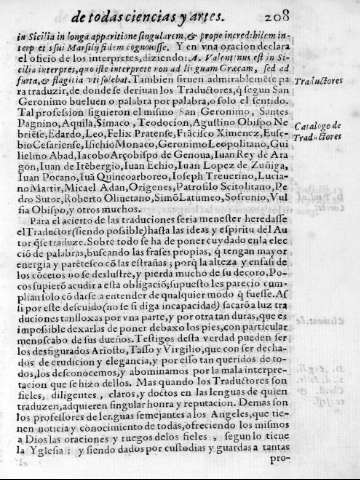 de todas ciencias y artes. 208
in Sicilia in longa apparitione singularem, & prope incredibilem in-
terp etis sui Marsilij fidem cognouisse. Y en vna oracion declara
el oficio de los interpretes, diziendo: A. Valentinus est in Si-
cilia interpres, quo iste interprete non ad linguam Græcam, sed ad
furta, & flagitia vti solebat. Tambien siruen admirablemẽte pa
ra traduzir, de donde se deriuan los Traductores, q̃ segun San
Geronimo bueluen o palabra por palabra, o solo el sentido.
Tal profession siguieron el mismo San Geronimo, Santes
Pagnino, Aquila, Simaco, Teodocion, Agustino Obispo Ne
briése, Edardo, Leo, Felix Pratense, Frãcisco Ximenez, Euse-
bio Cesariense, Isichio Monaco, Geronimo Leopolitano, Gui
lielmo Abad, Iacobo Arçobispo de Genoua, Iuan Rey de Ara
gon, Iuan de Icẽbergio, Iuan Echio, Iuan Lopez de Zuñiga,
Iuan Porano, Iuã Quincoarboreo, Ioseph Treuerino, Lucia-
no Martir, Micael Adan, Origenes, Patrofilo Scitolitano, Pe
dro Sutor, Roberto Olinetano, Simõ Latumeo, Sofronio, Vul
fia Obispo, y otros muchos.
Para el acierto de las traduciones seria menester heredasse
el Traductor (siendo possible) hasta las ideas y espiritu del Au
tor q̃ se traduze. Sobre todo se ha de poner cuydado en la elec
ciõ de palabras, buscando las frases propias, q̃ tengan mayor
energia y parẽtesco cõ las estrañas; porq̃ la alteza y enfasi de
los cõcetos no se deslustre, y pierda mucho de su decoro. Po-
cos supierõ acudir a esta obligaciõ, supuesto les parecio cum-
plian solo cõ darse a entender de qualquier modo q̃ fuesse. Af
si por este descuido (no se si diga incapacidad) sacarõ a luz tra
duciones tan floxas por vna parte, y por otra tan duras, que es
impossible dexarlas de poner debaxo los pies, con particular
menoscabo de sus dueños. Testigos desta verdad pueden ser
los desfigurados Ariosto, Tasso y Virgilio, que con ser decha-
dos de erudicion y elegancia, y por esso tan queridos de to-
dos, los desconocemos, y abominamos por la mala interpre-
tacion que se hizo dellos. Mas quando los Traductores son
fieles, diligentes, claros, y doctos en las lenguas de quien
traduzen, adquieren singular honra y reputacion. Demas son
los professores de lenguas semejantes a los Angeles, que tie-
nen noticia y conocimiento de todas, ofreciendo los mismos
a Dios las oraciones y ruegos de los fieles, segun lo tiene
la Yglesia: y siendo dados por custodias y guardas a tantas
pro-
Traductores
Catalogo de
Traductores